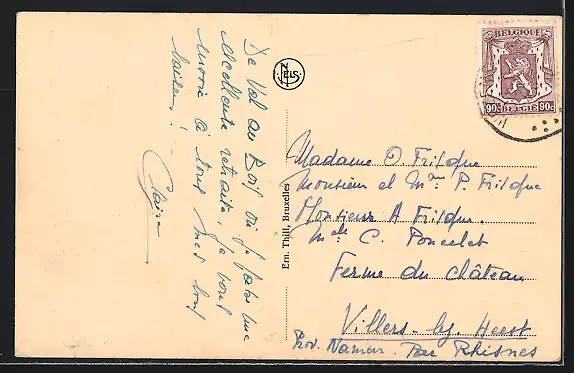 De Val au Bois où je passe une
excellente retraite je vous
envoie à tous mes bons
baisers !
Claire
NELS
Ern. Thill, Bruxelles
BELGIQUE
90c 90c
BELGIE
Madame O. Frisque
Monsieur et Mme P. Frisque
Monsieur A Frisque.
Melle C. Poncelet
Ferme du Château
Villers-lez-Heest
Prov. Namur. Par Rhisnes